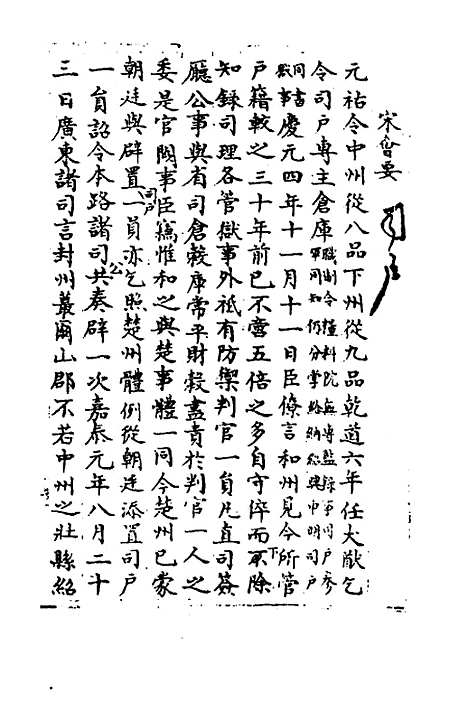 宋會要
司户
元祐令中州從八品下州從九品乾道六年任大猷乞
令司户專主倉庫職制令糧料院無專監錄事司户參
軍同知仍分掌給納經建申明司户
同書
獄事慶元四年十一月十一日臣僚言和州見今所管
户籍較之三十年前已不啻五倍之多自守倅而下不除
知錄司理各管獄事外祗有防禦判官一員凡直司簽
廳公事與省司倉穀庫常平財穀盡責於判官一人之
委是官闕事臣竊惟和之與楚事體一同今楚州已蒙
朝廷與辟置司户一員亦乞照楚州體例從朝廷添置司户
一員詔令本路諸司公共奏辟一次嘉泰元年八月二十
三日廣東諸司言封州蕞爾山郡不若中州之壯縣紹